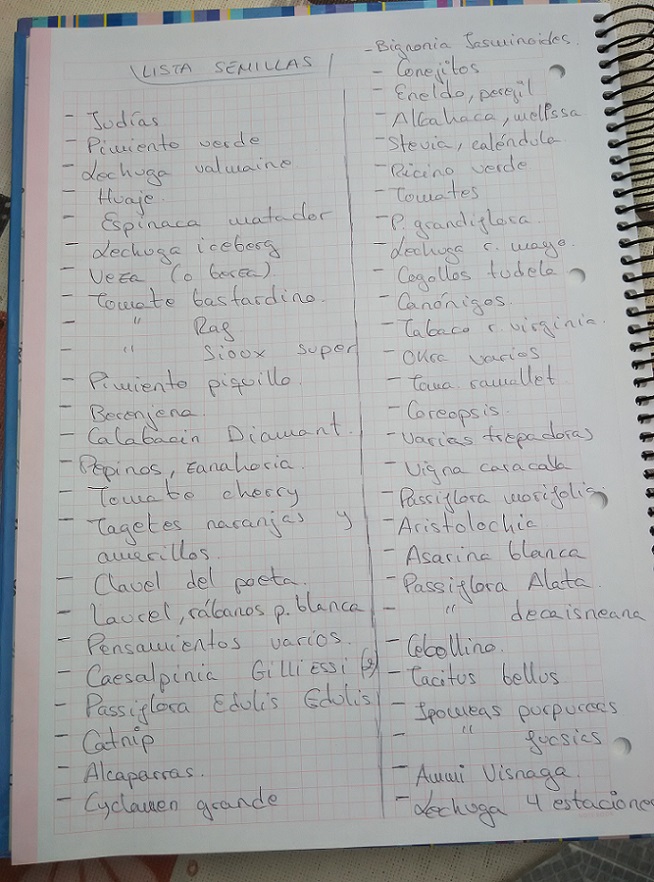 LISTA SEMILLAS
- Judías
- Pimiento verde
- Lechuga valmaine
- Huaje
- Espinaca matador
- Lechuga iceberg
- Veza (o berza)
- Tomate bastardino.
- " Rag
- " Sioux super
- Pimiento piquillo.
- Berenjena.
- Calabacin Diamant.
- Pepinos, zanahoria.
- Tomate cherry
- Tagetes naranjas y
amarillos.
- Clavel del poeta.
- Laurel, rábanos p. blanca
- Pensamientos varios.
- Caesalpinia Gilliessi
- Passiflora Edulis Edulis
- Catnip
- Alcaparras.
- Cyclamen grande
- Bignonia Jasminoides.
- Conejitos
- Eneldo, perejil
- Albahaca, melissa
- Stevia, caléndula.
- Ricino verde
- Tomates
- P. grandiflora.
- Lechuga r. mayo.
- Cogollos tudela
- Canónigos.
- Tabaco r. virginia.
- Okra varios
- Toma. ramallet
- Coreopsis.
- Varias trepadoras
- Vigna caracalla
- Passiflora morifolia
- Aristolochia
- Asarina blanca
- Passiflora Alata.
- " decaisneana
- Cebollino.
- Tacitus bellus
- Ipomeas purpureas
- " fucsias
- Ammi Visnaga.
- Lechuga 4 estaciones